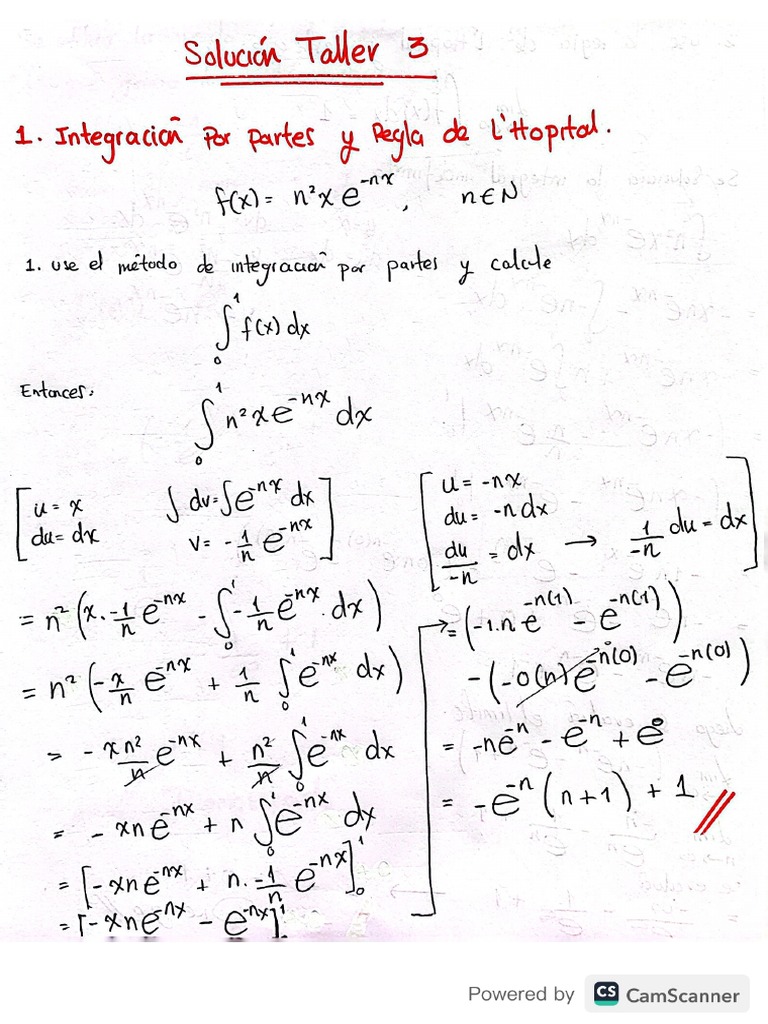 Solución Taller 3
1. Integración Por partes y Regla de L'Hopital.
f(x) = n²x e^{-nx}, n ∈ N
1. use el método de integración por partes y calcule
∫₀¹ f(x) dx
Entonces:
∫₀¹ n²xe^{-nx} dx
u = x ∫dv = ∫e^{-nx} dx
du = dx v = -1/n e^{-nx}
u = -nx
du = -n dx
du/-n = dx → 1/-n du = dx
= n² (x · -1/n e^{-nx} - ∫₀¹ -1/n e^{-nx} · dx)
= n² (-x/n e^{-nx} + 1/n ∫₀¹ e^{-nx} dx)
= - xn²/n e^{-nx} + n²/n ∫₀¹ e^{-nx} dx
= - xne^{-nx} + n ∫₀¹ e^{-nx} dx
= [-xne^{-nx} + n · -1/n e^{-nx}]₀¹
= [-xne^{-nx} - e^{-nx}]₀¹
→ = (-1·n e^{-n(1)} - e^{-n(1)})
- (-0(n)e^{-n(0)} - e^{-n(0)})
= -ne^{-n} - e^{-n} + e⁰
= -e^{-n} (n+1) + 1 //
Powered by CS CamScanner